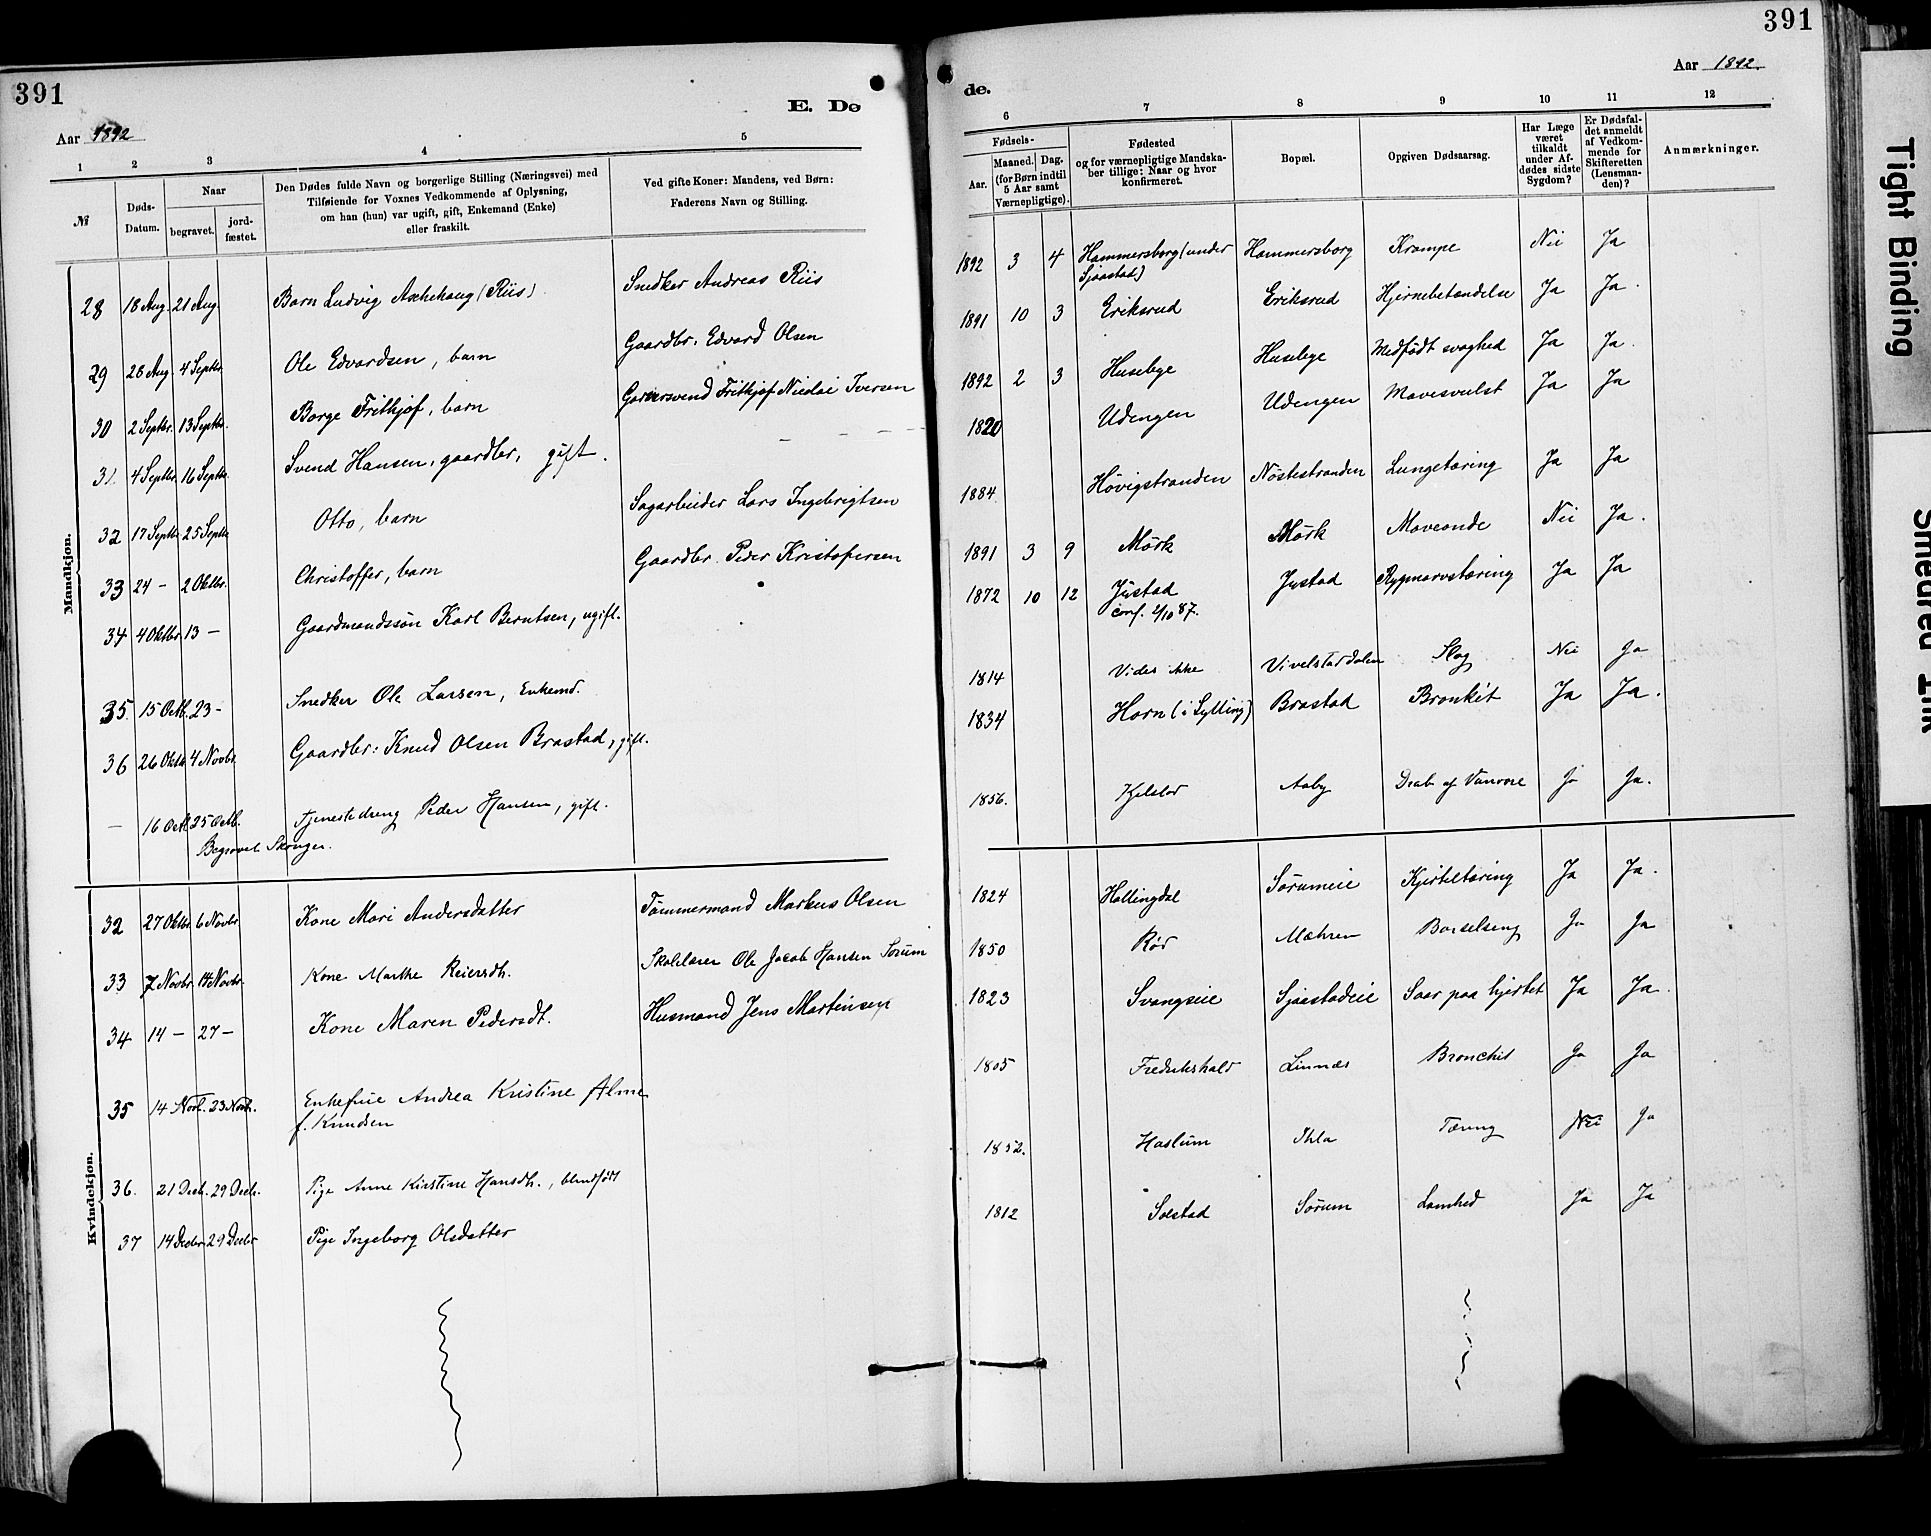 391
E. Dø
Aar 1892
1 2 3 4 5
№
Døds-
Datum.
Naar
begravet.
jord-
fæstet.
Den Dødes fulde Navn og borgerlige Stilling (Næringsvei) med
Tilføiende for Voxnes Vedkommende af Oplysning,
om han (hun) var ugift, gift, Enkemand (Enke)
eller fraskilt.
Ved gifte Koner: Mandens, ved Børn:
Faderens Navn og Stilling.
Mandkjøn.
28 18 Aug. 21 Aug. Barn Ludvig Aschehaug (Riis) Snedker Andreas Riis
29 28 Aug. 4 Septbr. Ole Edvardsen, barn Gaardbr. Edvard Olsen
30 2 Septbr. 13 Septbr. Borge Frithjof, barn Garversvend Frithjof Nicolai Iversen
31. 4 Septbr. 16 Septbr. Svend Hansen, gaardbr, gift.
32 17 Septbr. 25 Septbr. Otto, barn Sagarbeider Lars Ingebrigtsen
33 24 - 2 Oktbr. Christoffer, barn Gaardbr. Peder Kristofersen
34 4 Oktbr 13 - Gaardmandssøn Karl Berntsen, ugift.
35. 15 Octb. 23 - Snedker Ole Larsen, Enkemd.
36 26 Oktbr. 4 Novbr. Gaardbr: Knud Olsen Brastad, gift.
— 16 Octb. 25 Octb. Tjenestedreng Peder Hansen, gift.
Begravet Skouger.
Kvindekjøn.
32 27 Oktbr. 6 Novbr. Kone Mari Andersdatter Tømmermand Markus Olsen
33 7 Novbr. 14 Novbr. Kone Marthe Reiersdtr. Skolelærer Ole Jacob Hansen Sørum
34 14 - 27 - Kone Maren Pedersdt. Husmand Jens Martinsen
35 14 Novb. 23 Novb. Enkefrue Andrea Kristine Alme
f. Knudsen
36. 21 Decb. 29 Decb. Pige Anne Kirstine Hansdtr., blindfødt
37 14 Decbr. 29 Decbr Pige Ingeborg Olsdatter
391
Aar 1892.
de.
6 7 8 9 10 11 12
Fødsels-
Aar.
Maaned. Dag.
(for Børn indtil
5 Aar samt
Værnepligtige).
Fødested
og for værnepligtige Mandska-
ber tillige: Naar og hvor
konfirmeret.
Bopæl.
Opgiven Dødsaarsag.
Har Læge
været
tilkaldt
under Af-
dødes sidste
Sygdom?
Er Dødsfal-
det anmeldt
af Vedkom-
mende for
Skifteretten
(Lensman-
den)?
Anmærkninger.
1892 3 4 Hammersborg (under Hammersborg Krampe Nei Ja
Sjaastad)
1891 10 3 Eriksrud Eriksrud Hjernebetændelse Ja Ja.
1892 2 3 Husebye Husebye Medfødt svaghed Ja Ja.
1820 Udengen Udengen Mavesvulst Ja Ja
1884 Høvigstranden Nøstestranden Lungetæring Ja Ja
1891 3 9 Mørk Mørk Maveonde Nei Ja.
1872 10 12 Justad Justad Rygmarvstæring Ja Ja
Conf. 2/10 87.
1814 Vides ikke Vivelstaddalen Slag Nei Ja
1834 Horn (i Sylling) Brastad Bronkit Ja Ja.
1856. Kjelstad Aaby Drab af Vanvare Ja Ja.
1824 Hallingdal Sørumeie Kjerteltæring Ja Ja.
1850 Rød Mæhren Barselseng Ja Ja
1823 Svangseie Sjaastadeie Saar paa hjertet Ja Ja.
1805 Frederikshald Linnæs Bronchit Ja Ja
1852. Haslum Ihla Tæring Nei Ja
1812 Solstad Sørum Lamhed Ja Ja
Tight Binding
Smeared Ink